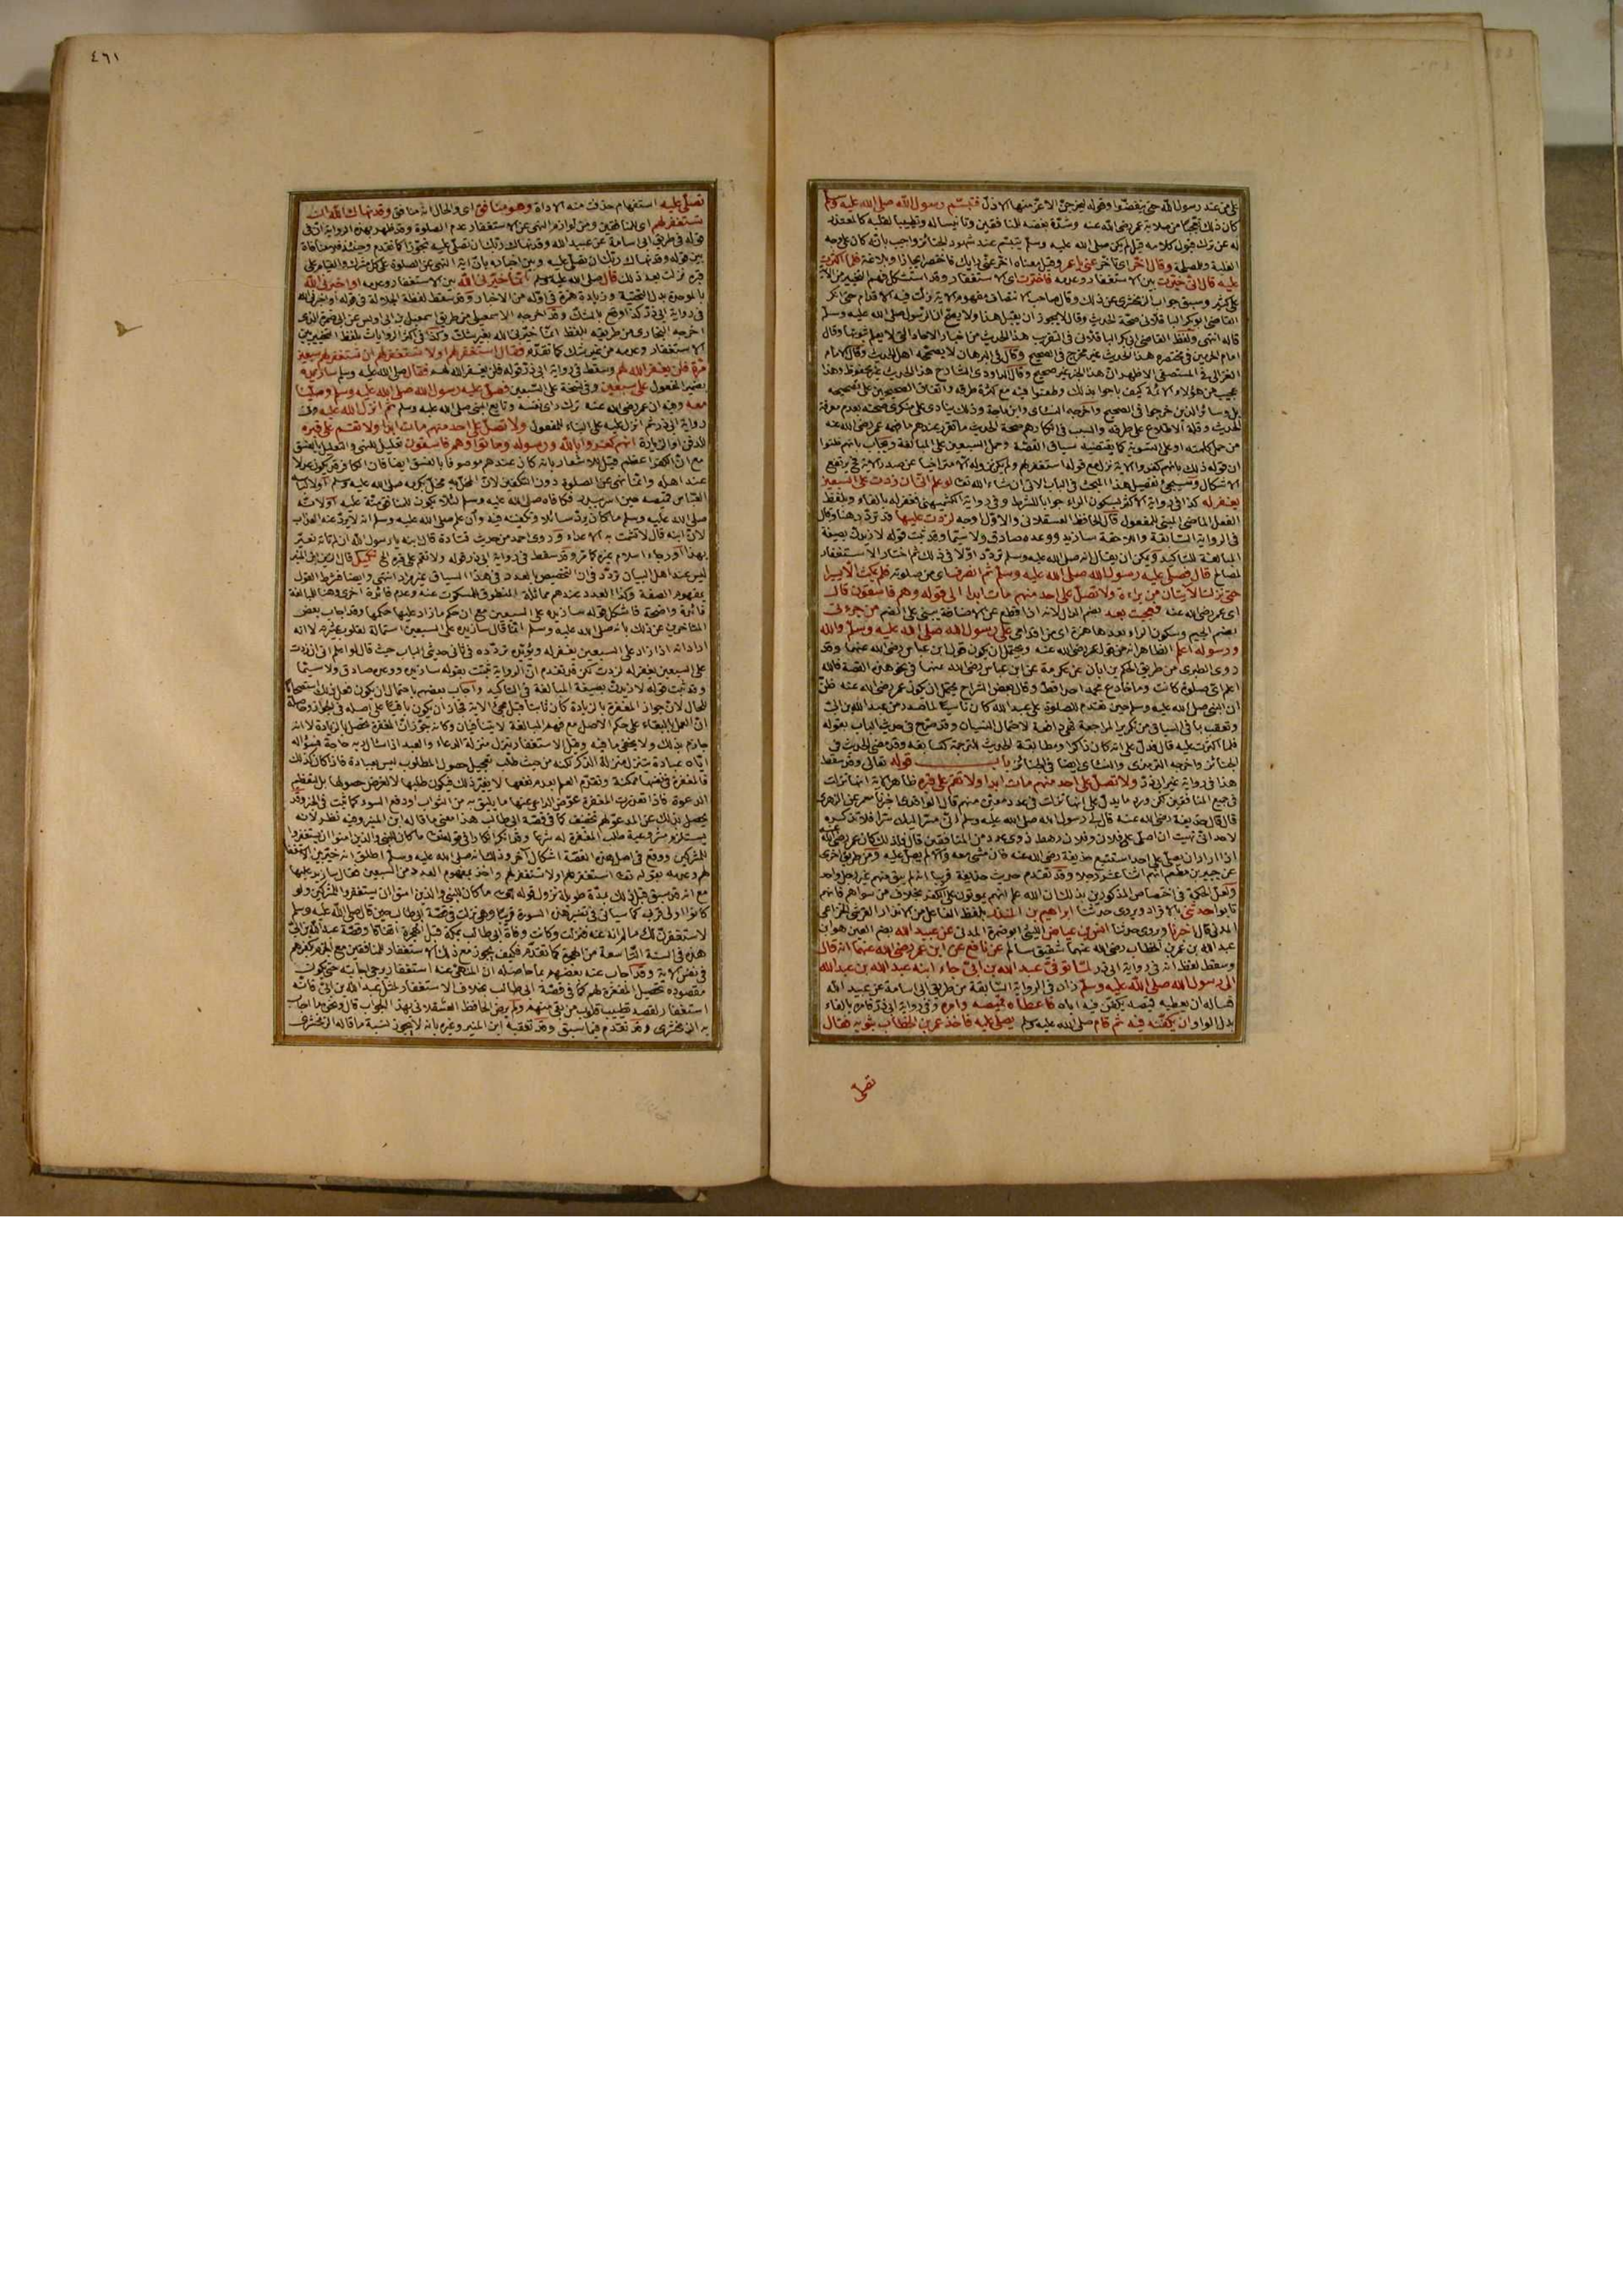 على من عند رسول الله حتى ينفضوا وقوله ليخرجن الاعز منها الاذل فتبسم رسول الله صلى الله عليه وسلم
كان ذلك تعجبا من صلابة عمر رضى الله عنه وشدة بغضه للمنافقين وتأنيسا له وتطييبا لقلبه كالمعتذر
له عن ترك قبول كلامه قيل لم يكن صلى الله عليه وسلم يتبسم عند شهود الجنائز واجيب بانه كان على وجه
الغلبة وقال اخر اى تأخر عنى يا عمر وقيل معناه اخر عنى رايك فاختصر ايجازا وبلاغة فلما اكثرت
عليه قال انى خيرت بين الاستغفار وعدمه فاخترت اى الاستغفار وقد استشكل فهم التخيير من الآية
على كثير وسبق جواب الزمخشرى عن ذلك وقال صاحب الانتصاف مفهوم الاية زلت فيه الاقدام حتى انكر
القاضى ابو بكر الباقلانى صحة الحديث وقال لا يجوز ان يقبل هذا ولا يصح ان الرسول صلى الله عليه وسلم
قاله انتهى ولفظ القاضى ابى بكر الباقلانى فى التقريب هذا الحديث من اخبار الاحاد التى لا يعلم ثبوتها وقال
امام الحرمين فى مختصره هذا الحديث غير مخرج فى الصحيح وقال فى البرهان لا يصححه اهل الحديث وقال الامام
الغزالى فى المستصفى الاظهر ان هذا الخبر غير صحيح وقال الداودى الشارح هذا الحديث غير محفوظ وهذا
عجيب من هؤلاء الائمة كيف باحوا بذلك وطعنوا فيه مع كثرة طرقه واتفاق الصحيحين على تصحيحه
بل وسائر الذين خرجوا فى الصحيح واخرجه النسائى وابن ماجة وذلك ينادى على منكرى صحته بعدم معرفة
الحديث وقلة الاطلاع على طرقه والسبب فى انكارهم صحة الحديث ما تقرر عندهم مما فهمه عمر رضى الله عنه
من حمل كلمة او على التسوية كما يقتضيه سياق القصة وحمل السبعين على المبالغة ويجاب بانهم ظنوا
ان قوله ذلك بانهم كفروا الاية نزل مع قوله استغفر لهم ولم يكن نزوله الا متراخيا عن صدر الاية فح يرتفع
الاشكال وسيجئ تفصيل هذا المبحث فى الباب الاتى ان شاء الله تعا لو اعلم انى ان زدت على السبعين
يغفر له كذا فى رواية الاكثر بسكون الراء جوابا للشرط وفى رواية الكشميهنى فغفر له بالفاء وبلفظ
الفعل الماضى المبنى للمفعول قال الحافظ العسقلانى والاول اوجه لزدت عليها قد تردد هنا وقال
فى الرواية السابقة واللاحقة سازيد ووعده صادق ولا سيما وقد ثبت قوله لازيدن بصيغة
المبالغة للتاكيد ويمكن ان يقال انه صلى الله عليه وسلم تردد اولا فى ذلك ثم اختار الاستغفار
لمصالح قال فصلى عليه رسول الله صلى الله عليه وسلم ثم انصرف اى من صلوته فلم يمكث الا يسيرا
حتى نزلت الايتان من براءة ولا تصل على احد منهم مات ابدا الى قوله وهم فاسقون قال
اى عمر رضى الله عنه فعجبت بعد بضم الدال لانه اذا قطع عن الاضافة يبنى على الضم من جرءتى
بضم الجيم وسكون الراء بعدها همزة اى من اقدامى على رسول الله صلى الله عليه وسلم والله
ورسوله اعلم الظاهر انه من قول عمر رضى الله عنه ويحتمل ان يكون قول ابن عباس رضى الله عنهما وقد
روى الطبرى من طريق الحكم بن ابان عن عكرمة عن ابن عباس رضى الله عنهما فى نحو هذه القصة فالله
اعلم اى صلوة كانت وما خادع محمد احدا قط وقال بعض الشراح يحتمل ان يكون عمر رضى الله عنه ظن
ان النبى صلى الله عليه وسلم حين تقدم للصلوة على عبد الله كان ناسيا لما صدر من عبد الله بن ابى
وتعقب بما فى السياق من تكرير المراجعة فهى دافعة لاحتمال النسيان وقد صرح فى حديث الباب بقوله
فلما اكثرت عليه قال فدل على انه كان ذاكرا ومطابقة الحديث للترجمة كسابقه وقد مضى الحديث فى
الجنائز واخرجه الترمذى والنسائى ايضا فى الجنائز باب قوله تعالى وقد سقط
هذا فى رواية غير ابى ذر ولا تصل على احد منهم مات ابدا ولا تقم على قبره ظاهر الاية انها نزلت
فى جميع المنافقين لكن ورد ما يدل على انها نزلت فى عدد معين منهم قال الواقدى اخبرنا معمر عن الزهرى
قال قال حذيفة رضى الله عنه قال لى رسول الله صلى الله عليه وسلم انى مسر اليك سرا فلا تذكره
لاحد انى نهيت ان اصلى على فلان وفلان رهط ذوى عدد من المنافقين قال فلذلك كان عمر رضى الله عنه
اذا اراد ان يصلى على احد استتبع حذيفة رضى الله عنه فان مشى معه والا لم يصل عليه ومن طريق اخرى
عن جبير بن مطعم انهم اثنا عشر رجلا وقد تقدم حديث حذيفة قريبا انه لم يبق منهم غير رجل واحد
ولعل الحكمة فى اختصاص المذكورين بذلك ان الله علم انهم يموتون على الكفر بخلاف من سواهم فانهم
تابوا حدثنى بالافراد ويروى حدثنا ابراهيم بن المنذر بلفظ الفاعل من الانذار القرشى الحزامى
المدنى قال اخبرنا ويروى حدثنا انس بن عياض الليثى ابو ضمرة المدنى عن عبيد الله بضم العين هو ابن
عبد الله بن عمر بن الخطاب رضى الله عنهما شقيق سالم عن نافع عن ابن عمر رضى الله عنهما انه قال
وسقط لفظ انه فى رواية ابى ذر لما توفى عبد الله بن ابى جاء ابنه عبد الله بن عبد الله
الى رسول الله صلى الله عليه وسلم زاد فى الرواية السابقة من طريق ابى اسامة عن عبيد الله
فساله ان يعطيه قميصه يكفن فيه اباه فاعطاه قميصه وامره وفى رواية ابى ذر فامره بالفاء
بدل الواو ان يكفنه فيه ثم قام صلى الله عليه وسلم يصلى عليه فاخذ عمر بن الخطاب بثوبه فقال
تصلى
٤٦١
تصلى عليه استفهام حذف منه الاداة وهو منافق اى والحال انه منافق وقد نهاك الله ان
تستغفر لهم اى للمنافقين ومن لوازم النهى عن الاستغفار عدم الصلوة وقد ظهر بهذه الرواية ان فى
قوله فى طريق ابى اسامة عن عبيد الله وقد نهاك ربك ان تصلى عليه تجوزا كما تقدم وحينئذ فلا منافاة
بين قوله وقد نهاك ربك ان تصلى عليه وبين اخباره بان اية النهى عن الصلوة على كل مشرك والقيام على
قبره نزلت بعد ذلك قال صلى الله عليه وسلم انما خيرنى الله بين الاستغفار وعدمه او اخبرنى الله
بالموحدة بدل التحتية وزيادة همزة فى اوله من الاخبار وقد سقط لفظة الجلالة فى قوله او اخبرنى الله
فى رواية ابى ذر كذا وقع بالشك وقد اخرجه الاسمعيلى من طريق اسمعيل بن ابى اويس عن ابى ضمرة الذى
اخرجه البخارى من طريقه بلفظ انما خيرنى الله بغير شك وكذا فى اكثر الروايات بلفظ التخيير بين
الاستغفار وعدمه من غير شك كما تقدم فقال استغفر لهم او لا تستغفر لهم ان تستغفر لهم سبعين
مرة فلن يغفر الله لهم وسقط فى رواية ابى ذر قوله فلن يغفر الله لهم فقال صلى الله عليه وسلم سازيده
بضمير المفعول على سبعين وفى نسخة على السبعين فصلى عليه رسول الله صلى الله عليه وسلم وصلينا
معه وفيه ان عمر رضى الله عنه ترك راى نفسه وتابع النبى صلى الله عليه وسلم ثم انزل الله عليه وفى
رواية ابى ذر ثم انزل عليه على البناء للمفعول ولا تصل على احد منهم مات ابدا ولا تقم على قبره
للدفن او الزيارة انهم كفروا بالله ورسوله وماتوا وهم فاسقون تعليل للنهى والتعليل بالفسق
مع ان الكفر اعظم قيل للاشعار بانه كان عندهم موصوفا بالفسق ايضا فان الكافر قد يكون عدلا
عند اهله وانما نهى عن الصلوة دون التكفين لان البخل به مخل بكرمه صلى الله عليه وسلم او لالباسه
العباس قميصه حين اسر ببدر فكافاه صلى الله عليه وسلم لئلا يكون للمنافق منة عليه او لانه
صلى الله عليه وسلم ما كان يرد سائلا وتكفينه فيه وان علم صلى الله عليه وسلم انه لا يرد عنه العذاب
لان ابنه قال لا تشمت به الاعداء وروى احمد من حديث قتادة قال ابنه يا رسول الله ان لم تأته نعير
بهذا او رجاء اسلام غيره كما مر وقد سقط فى رواية ابى ذر قوله ولا تقم على قبره الخ تكميل قال الزين ابن المنير
ليس عند اهل البيان تردد فى ان التخصيص بالعدد فى هذا السياق غير مراد انتهى وايضا فشرط القول
بمفهوم الصفة وكذا العدد عندهم مماثلة المنطوق للمسكوت عنه وعدم فائدة اخرى وهنا للمبالغة
فائدة واضحة فاشكل قوله سازيده على السبعين مع ان حكم ما زاد عليها حكمها وقد اجاب بعض
المتاخرين عن ذلك بانه صلى الله عليه وسلم انما قال سازيده على السبعين استمالة لقلوب عشيرته لا انه
اراد انه اذا زاد على السبعين يغفر له ويؤيده تردده فى ثانى حديثى الباب حيث قال لو اعلم انى ان زدت
على السبعين يغفر له لزدت لكن قد تقدم ان الرواية ثبتت بقوله سازيده ووعده صادق ولا سيما
وقد ثبت قوله لازيدن بصيغة المبالغة فى التاكيد واجاب بعضهم باحتمال ان يكون فعل ذلك استصحابا
للحال لان جواز المغفرة بالزيادة كان ثابتا قبل مجئ الاية فجاز ان يكون باقيا على اصله فى الجواز وحاصله
ان العمل بالبقاء على حكم الاصل مع فهم المبالغة لا يتنافيان وكانه جوز ان المغفرة تحصل بالزيادة لا انه
جازم بذلك ولا يخفى ما فيه وقيل الاستغفار يتنزل منزلة الدعاء والعبد اذا سأل ربه حاجة فسؤاله
اياه عبادة يتنزل منزلة الذكر لكنه من حيث طلب تعجيل حصول المطلوب ليس بعبادة فاذا كان كذلك
فالمغفرة فى نفسها ممكنة وتقدم العلم بعدم نفعها لا يغير ذلك فيكون طلبها لا لغرض حصولها بل لتعظيم
المدعو فاذا تعذرت المغفرة عوض الداعى عنها ما يليق به من الثواب او دفع السوء كما ثبت فى الخبر وقد
يحصل بذلك عن المدعو لهم تخفيف كما فى قصة ابى طالب هذا معنى ما قاله ابن المنير وفيه نظر لانه
يستلزم مشروعية طلب المغفرة له شرعا وقد انكر انكارا فى قوله تعا ما كان للنبى والذين امنوا ان يستغفروا
للمشركين ووقع فى اصل هذه القصة اشكال آخر وذلك انه صلى الله عليه وسلم اطلق انه خير بين الاستغفار
لهم وعدمه بقوله تعا استغفر لهم او لا تستغفر لهم واخذ بمفهوم العدد من السبعين فقال سازيد عليها
مع انه قد سبق قبل ذلك بمدة طويلة نزول قوله تعا ما كان للنبى والذين امنوا ان يستغفروا للمشركين ولو
كانوا اولى قربى كما سيأتى فى تفسير هذه السورة قريبا وهى نزلت فى قصة ابى طالب حين قال صلى الله عليه وسلم
لاستغفرن لك ما لم انه عنه فنزلت وكانت وفاة ابى طالب بمكة قبل الهجرة اتفاقا وقصة عبد الله بن ابى
هذه فى السنة التاسعة من الهجرة كما تقدم فكيف يجوز مع ذلك الاستغفار للمنافقين مع الجزم بكفرهم
فى نفس الاية وقد اجاب عنه بعضهم بما حاصله ان المنهى عنه استغفار يرجى اجابته حتى يكون
مقصوده تحصيل المغفرة لهم كما فى قصة ابى طالب بخلاف الاستغفار لمثل عبد الله بن ابى فانه
استغفار لقصد تطييب قلوب من بقى منهم ولم يرض الحافظ العسقلانى بهذا الجواب قال ونحوه ما اجاب
به الزمخشرى وقد تقدم فيما سبق وقد تعقبه ابن المنير وغيره بانه لا يجوز نسبة ما قاله الزمخشرى